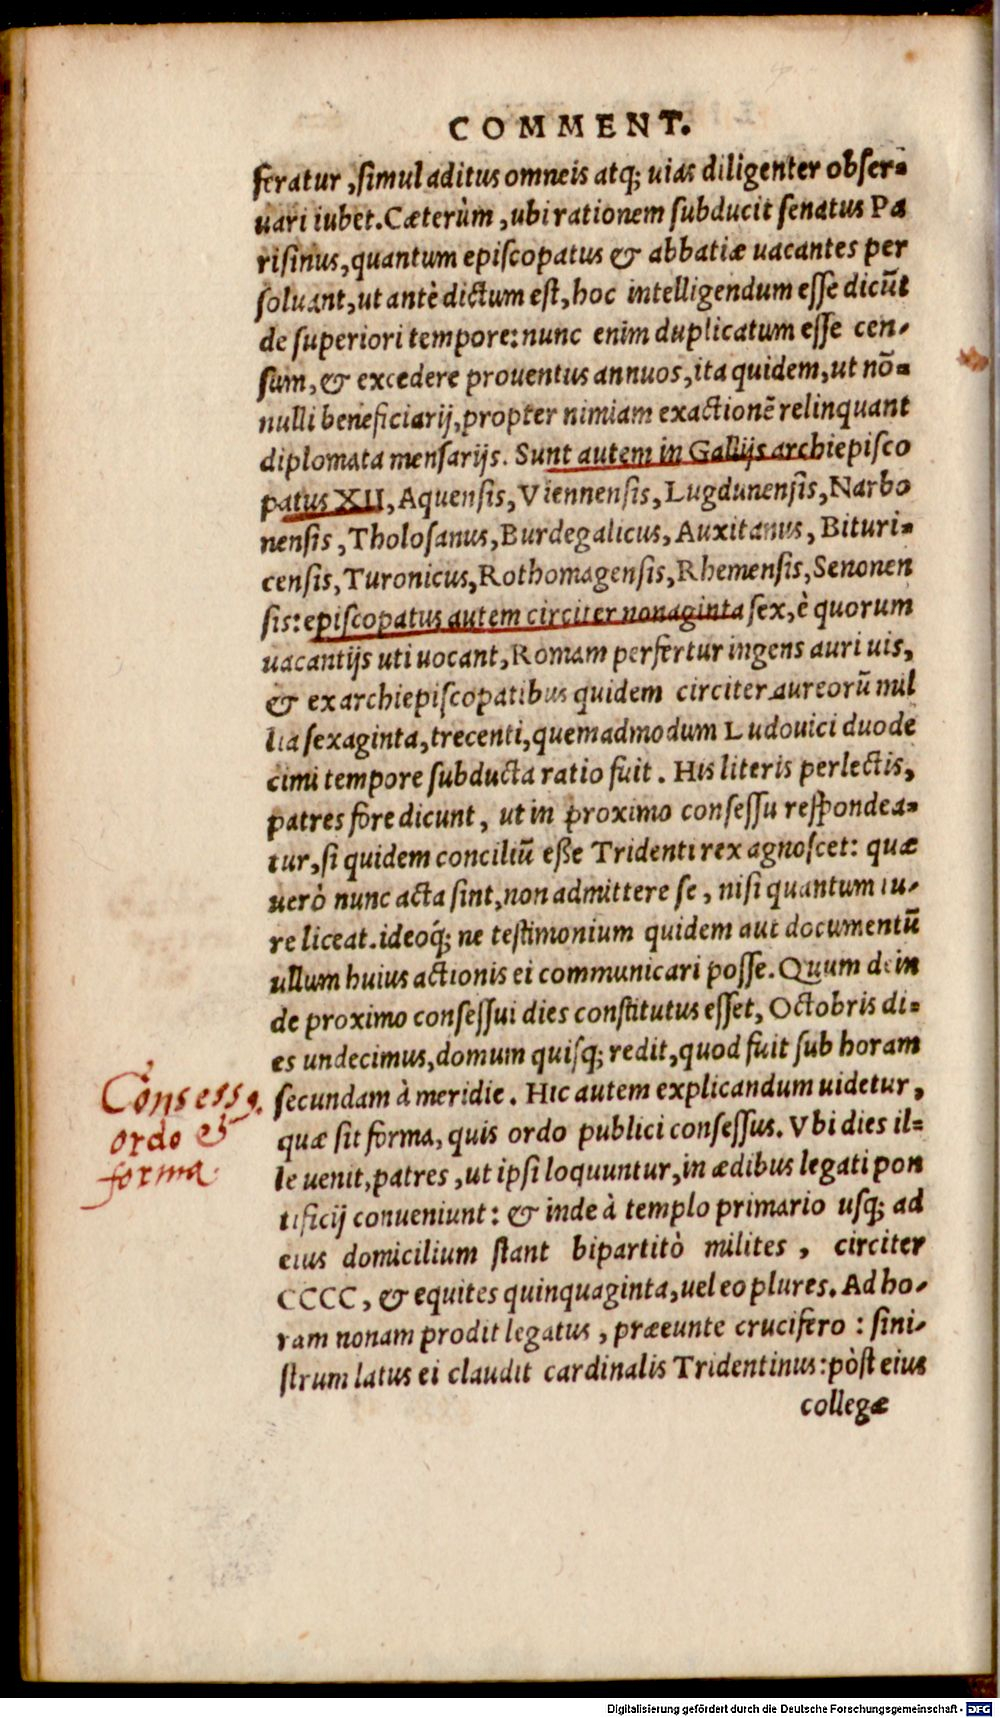 COMMENT.
feratur, simul aditus omneis atq; uias diligenter obser-
uari iubet. Cæterùm, ubi rationem subducit senatus Pa
risinus, quantum episcopatus & abbatiæ uacantes per
soluant, ut antè dictum est, hoc intelligendum esse dicũt
de superiori tempore: nunc enim duplicatum esse cen-
sum, & excedere prouentus annuos, ita quidem, ut nõ-
nulli beneficiarij, propter nimiam exactionẽ relinquant
diplomata mensarijs. Sunt autem in Gallijs archiepisco
patus XII, Aquensis, Viennensis, Lugdunensis, Narbo
nensis, Tholosanus, Burdegalicus, Auxitanus, Bituri-
censis, Turonicus, Rothomagensis, Rhemensis, Senonen
sis: episcopatus autem circiter nonaginta sex, è quorum
uacantijs uti uocant, Romam perfertur ingens auri uis,
& ex archiepiscopatibus quidem circiter aureorũ mil
lia sexaginta, trecenti, quemadmodum Ludouici duode
cimi tempore subducta ratio fuit. His literis perlectis,
patres fore dicunt, ut in proximo consessu respondea-
tur, si quidem conciliũ esse Tridenti rex agnoscet: quæ
uerò nunc acta sint, non admittere se, nisi quantum iu-
re liceat. ideoq́; ne testimonium quidem aut documentũ
ullum huius actionis ei communicari posse. Quum dein
de proximo consessui dies constitutus esset, Octobris di-
es undecimus, domum quisq; redit, quod fuit sub horam
secundam à meridie. Hic autem explicandum uidetur,
quæ sit forma, quis ordo publici consessus. Vbi dies il-
le uenit, patres, ut ipsi loquuntur, in ædibus legati pon
tificij conueniunt: & inde à templo primario usq; ad
eius domicilium stant bipartitò milites, circiter
CCCC, & equites quinquaginta, uel eo plures. Ad ho-
ram nonam prodit legatus, præeunte crucifero: sini-
strum latus ei claudit cardinalis Tridentinus: pòst eius
collegæ
Consessꝰ.
ordo &
forma.
Digitalisierung gefördert durch die Deutsche Forschungsgemeinschaft - DFG